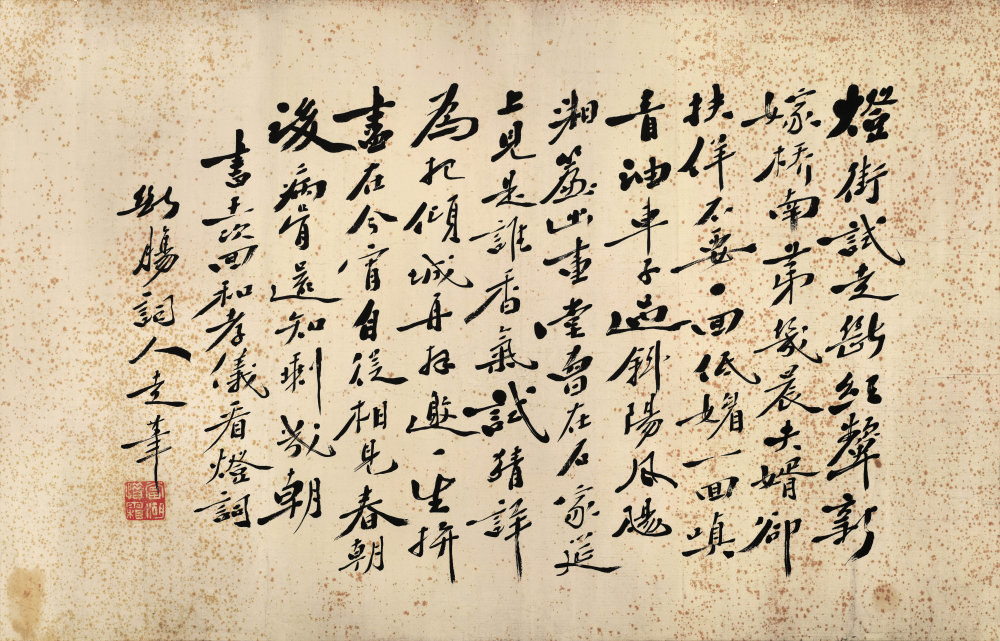 燈街試走新
嫁橋南第幾晨夫婿卻
扶佯不要一面低媚一面嗔
青油車子過斜陽風颺
湘簾出畫堂曾在石家筵
上見是誰香氣試猜詳
為把傾城再拜邀一生拚
盡在今宵自從相見春朝
後病骨還知剩幾朝
書王次回和孝儀看燈詞
斷腸詞人走筆